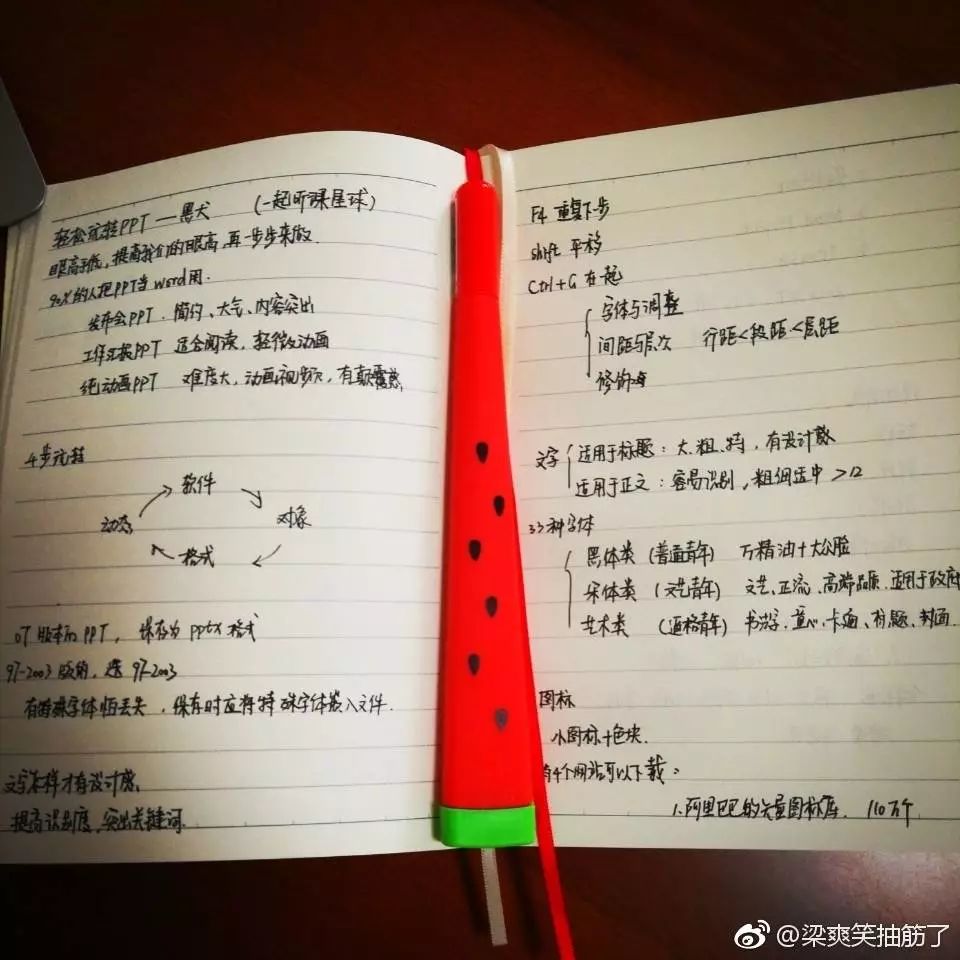 轻松玩转PPT — 黑犬 (一起听课星球)
眼高手低,提高我们的眼高,再一步步来做.
90%的人把PPT当word用.
发布会PPT. 简约、大气、内容突出
工作汇报PPT 适合阅读,轻微动画
纯动画PPT 难度大,动画视频,有颠覆感.
4步玩转
软件
动态 对象
格式
07版本的PPT, 保存为pptx格式
97-2003版的,选97-2003
有特殊字体怕丢失,保存时应将特殊字体嵌入文件.
文字怎样才有设计感,
提高识别度,突出关键词.
F4 重复下步
shift 平移
Ctrl+G 在一起
字体与调整
间距与层次 行距<段距<层距
修饰
文字
适用于标题:大、粗、特,有设计感
适用于正文:容易识别,粗细适中 >12
3种字体
黑体类 (普通青年) 万精油+大众脸
宋体类 (文艺青年) 文艺、正流、高端品质、适用于政府
艺术类 (逼格青年) 书法字、童心、卡通、有题、封面.
图标
小图标+色块.
有4个网站可以下载:
1.阿里巴巴的矢量图标库. 110万个
@梁爽笑抽筋了